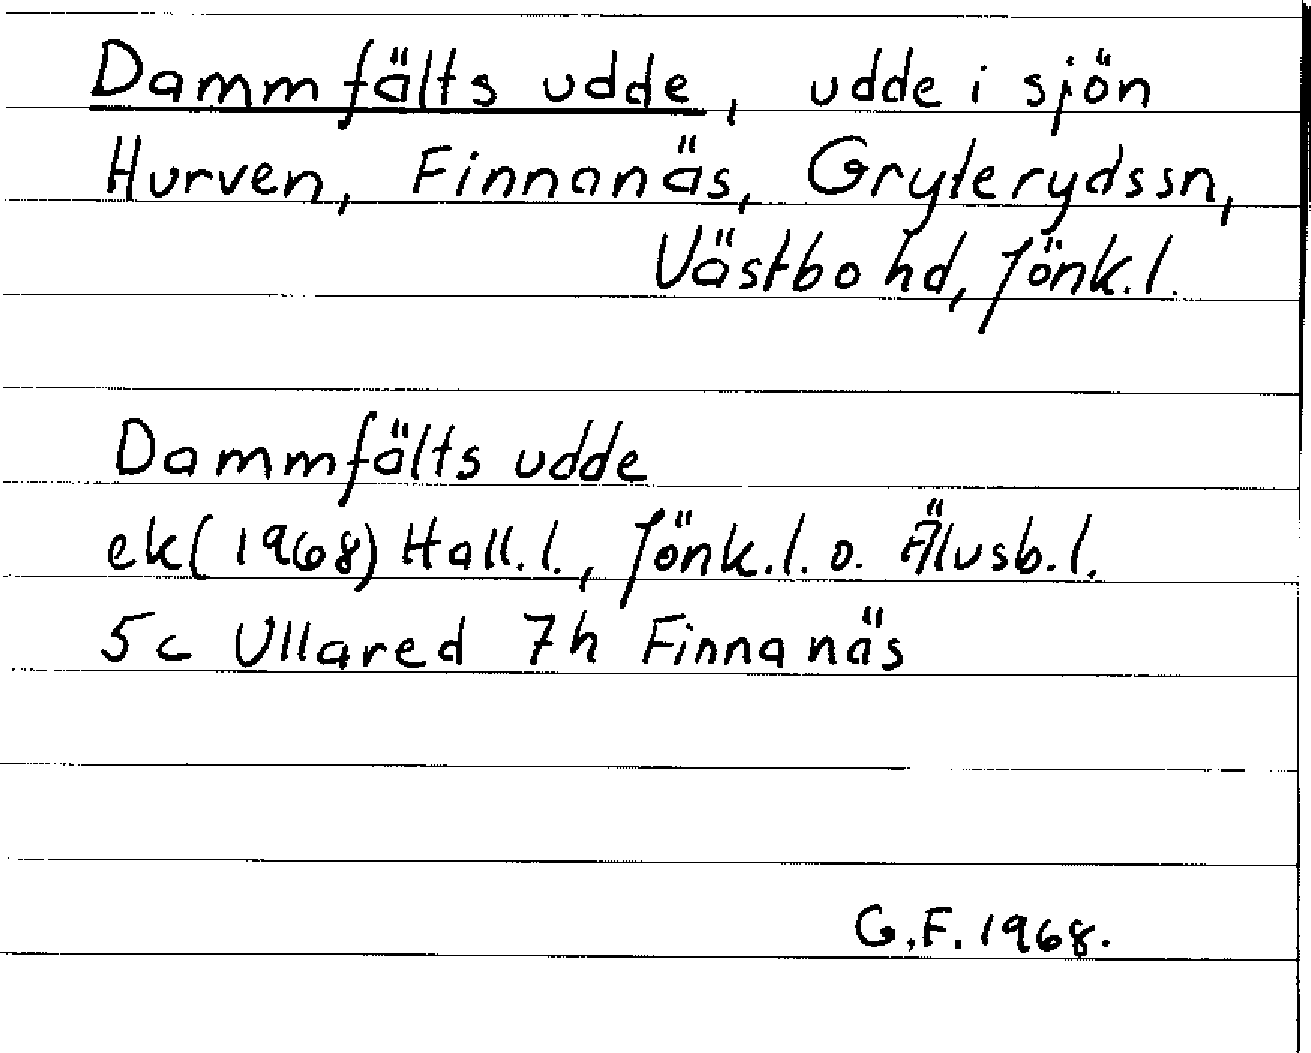 Dammfälts udde, udde i sjön
Hurven, Finnanäs, Gryterydssn,
Västbo hd, Jönk.l.
Dammfälts udde
ek (1968) Hall.l., Jönk.l. o. Älvsb.l.
5c Ullared 7h Finnanäs
G.F. 1968.